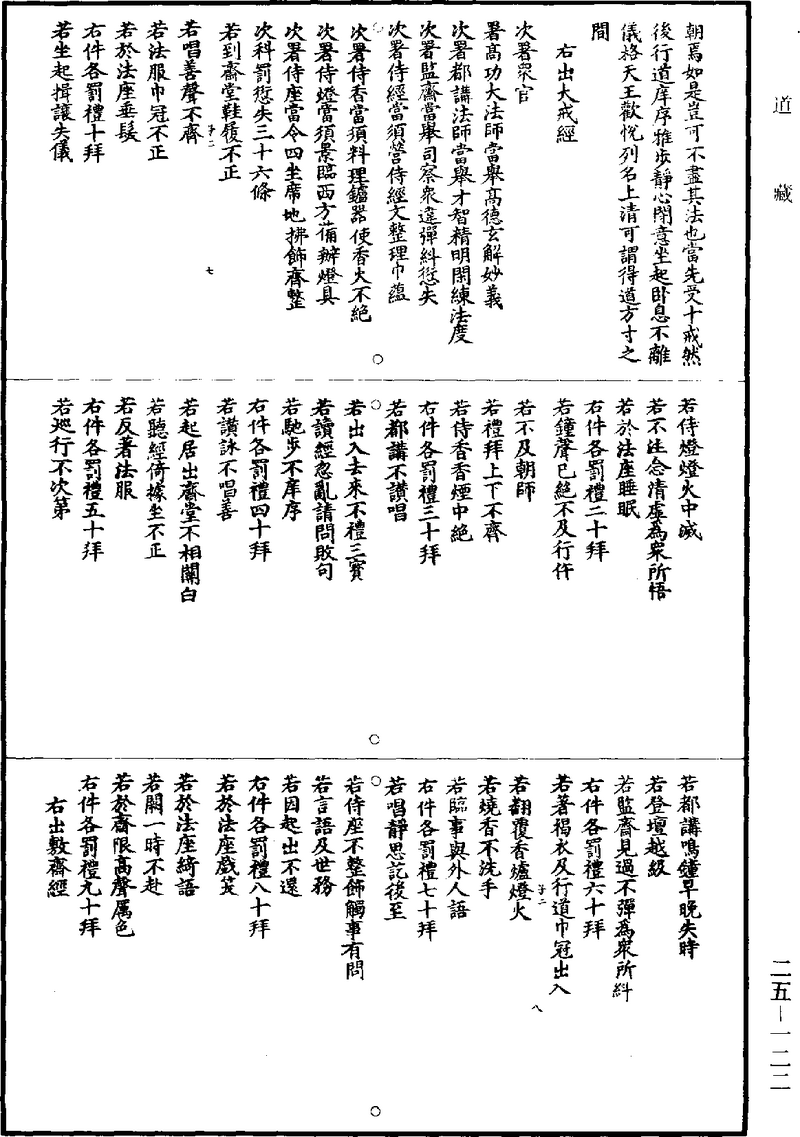 道藏
朝焉如是豈可不盡其法也當先受十戒然
後行道庠序雅步靜心閑意坐起卧息不離
儀格天王歡悅列名上清可謂得道方寸之
間
右出大戒經
次署眾官
署高功大法師當舉高德玄解妙義
次署都講法師當舉才智精明閑練法度
次署監齋當舉司察眾違彈糾愆失
次署侍經當須營侍經文整理巾蘊
次署侍香當須料理鑪器使香火不絕
次署侍燈當須景臨西方備辦燈具
次署侍座當令四坐席地拂飾齊整
次科罰愆失三十六條
若到齋堂鞋履不正
子二
七
若唱善聲不齊
若法服巾冠不正
若於法座垂髮
右件各罰禮十拜
若坐起揖讓失儀
若侍燈燈火中滅
若不注念清虛為眾所悟
若於法座睡眠
右件各罰禮二十拜
若鐘聲已絕不及行仵
若不及朝師
若禮拜上下不齊
若侍香香煙中絕
右件各罰禮三十拜
若都講不讚唱
若出入去來不禮三寶
若讀經忽亂請問敗句
若馳步不庠序
右件各罰禮四十拜
若讚詠不唱善
若起居出齋堂不相關白
若聽經倚據坐不正
若反著法服
右件各罰禮五十拜
若巡行不次第
若都講鳴鐘早晚失時
若登壇越級
若監齋見過不彈為眾所糾
右件各罰禮六十拜
若著褐衣及行道巾冠出入
子二
八
若翻覆香爐燈火
若燒香不洗手
若臨事與外人語
右件各罰禮七十拜
若唱靜思訖後至
若侍座不整飾觸事有問
若言語及世務
若因起出不還
右件各罰禮八十拜
若於法座戲笑
若於法座綺語
若闕一時不赴
若於齋限高聲厲色
右件各罰禮九十拜
右出敷齋經
二五—一二二